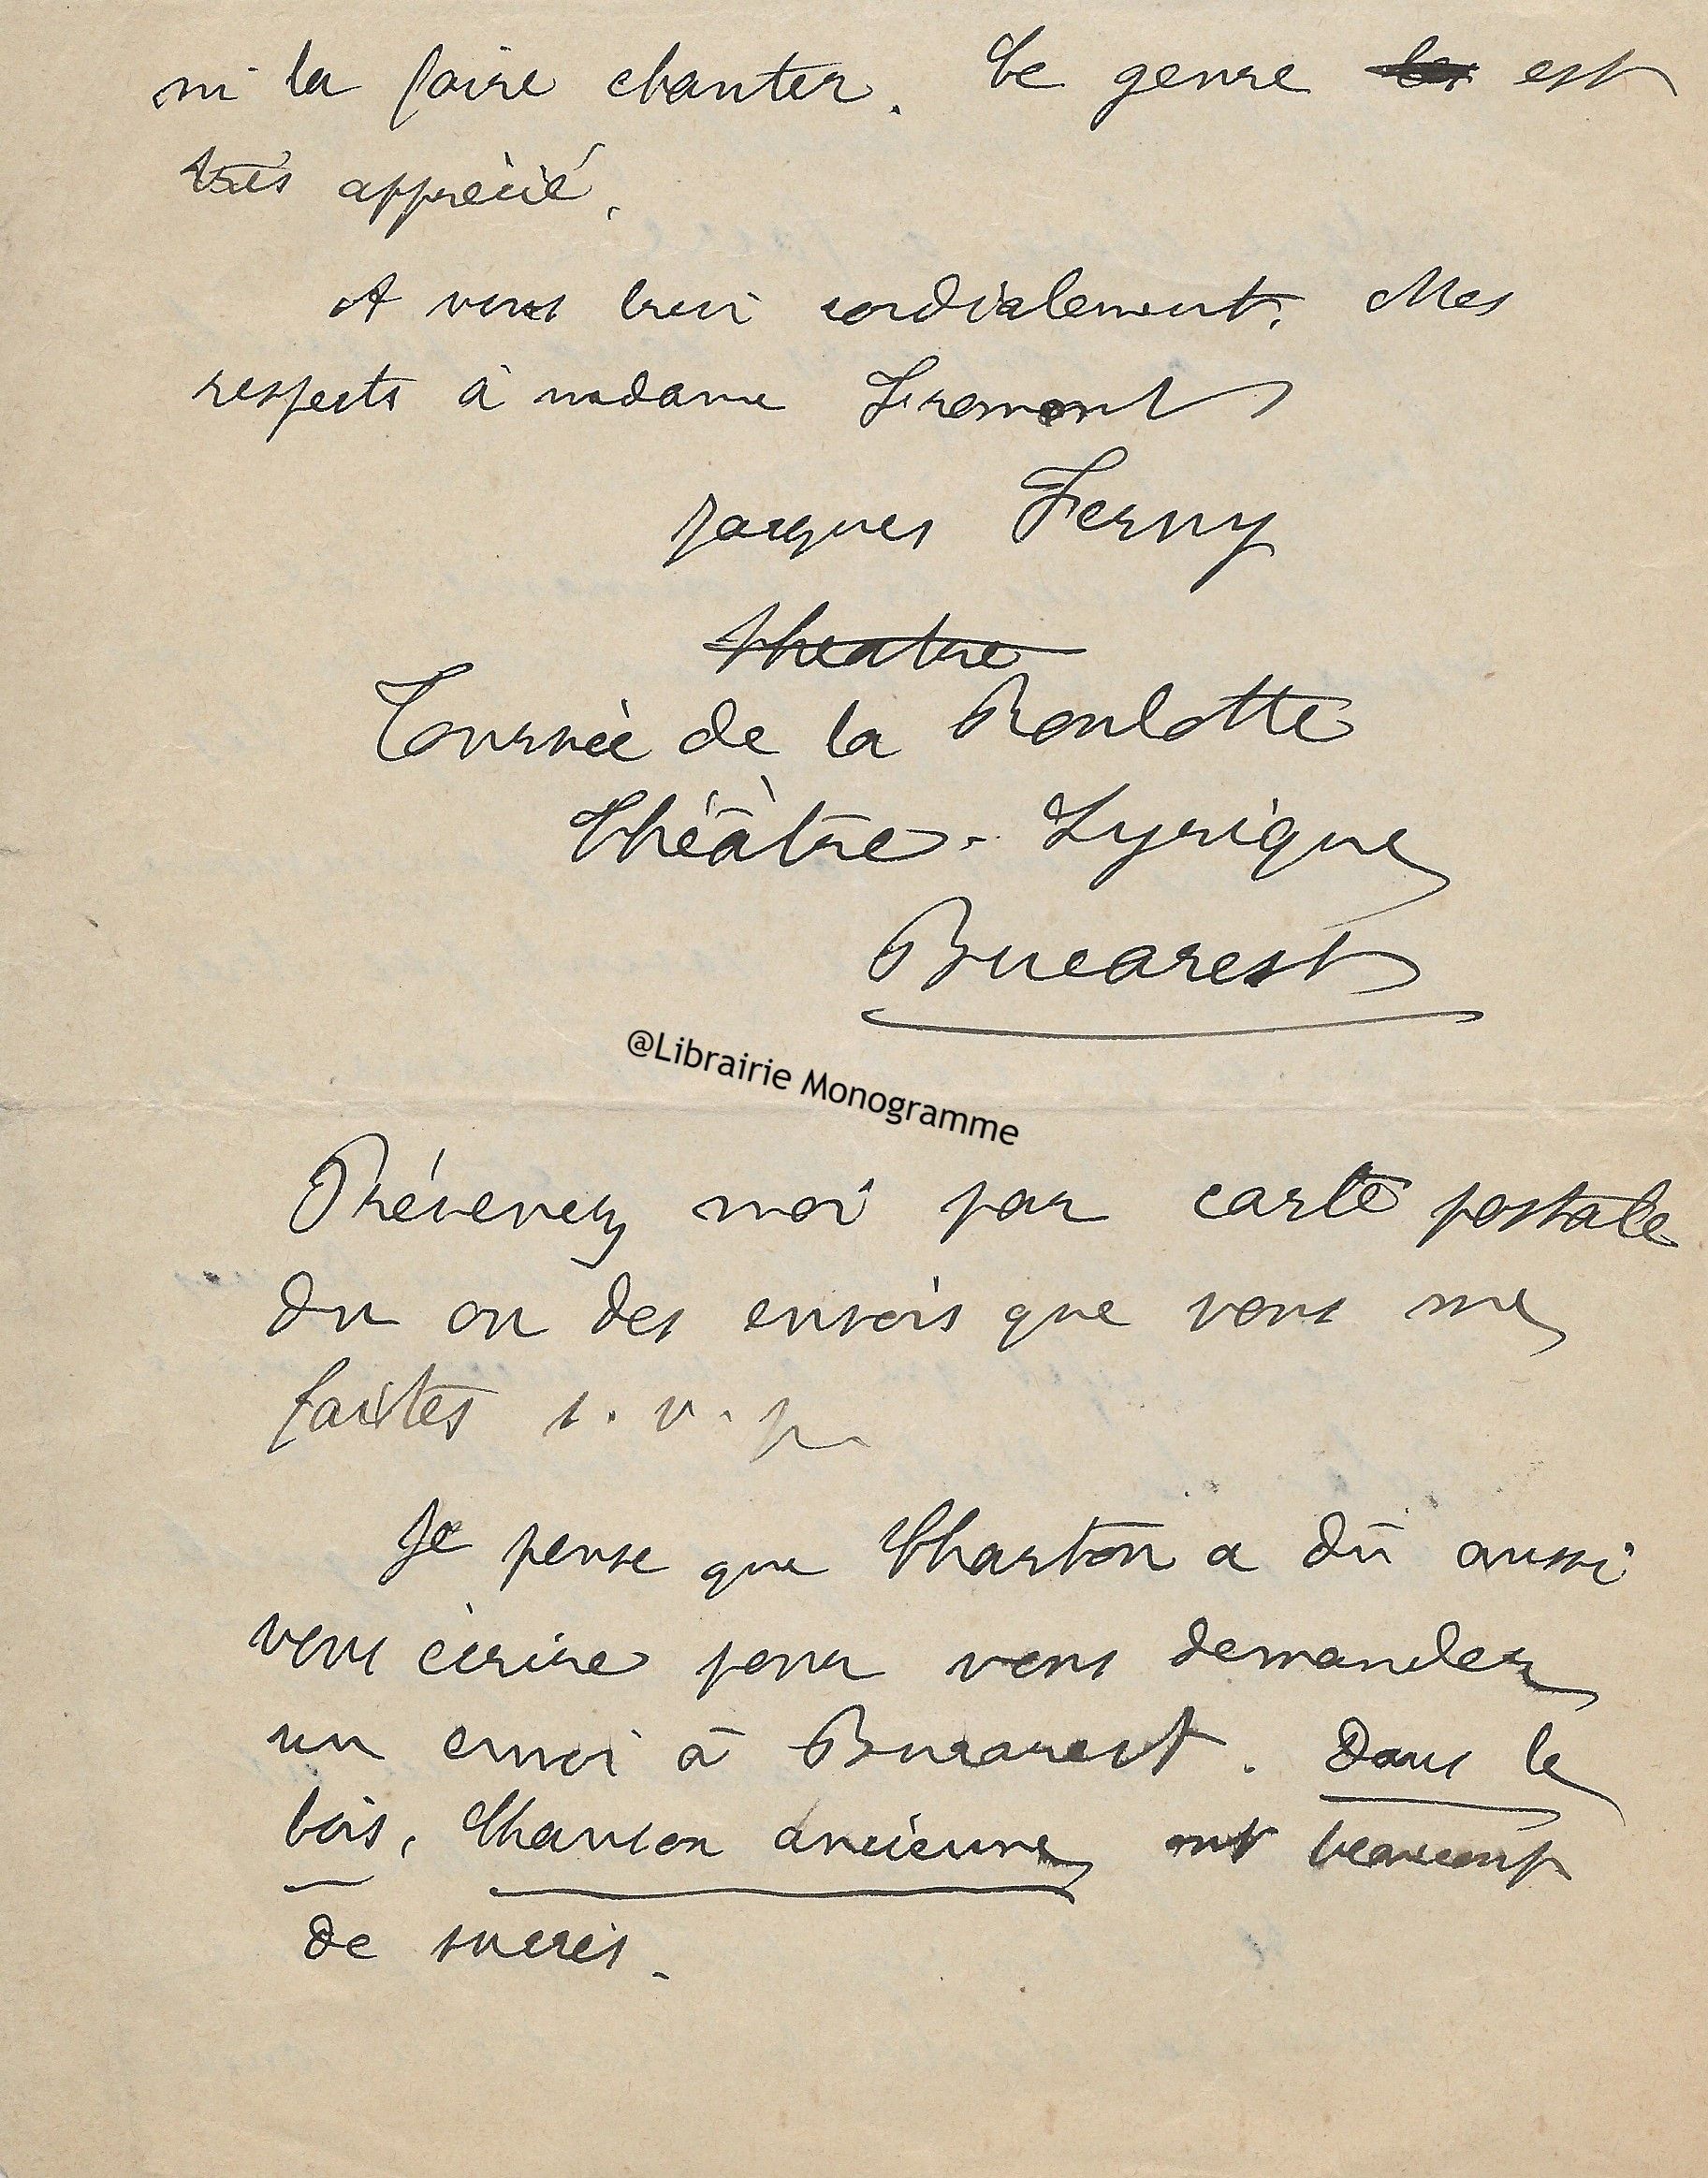 ni la faire chanter. Ce genre est
très apprécié.
A vous bien cordialement. Mes
respects à madame Fromont
Jacques Ferny
théatre
Tournée de la Roulotte
Théâtre-Lyrique
Bucarest
@Librairie Monogramme
Prévenez moi par carte postale
du ou des envois que vous me
faites s.v.p.
Je pense que Charton a dû aussi
vous écrire pour vous demander
un envoi à Bucarest. Dans le
bois, Chanson ancienne ont beaucoup
de succès.